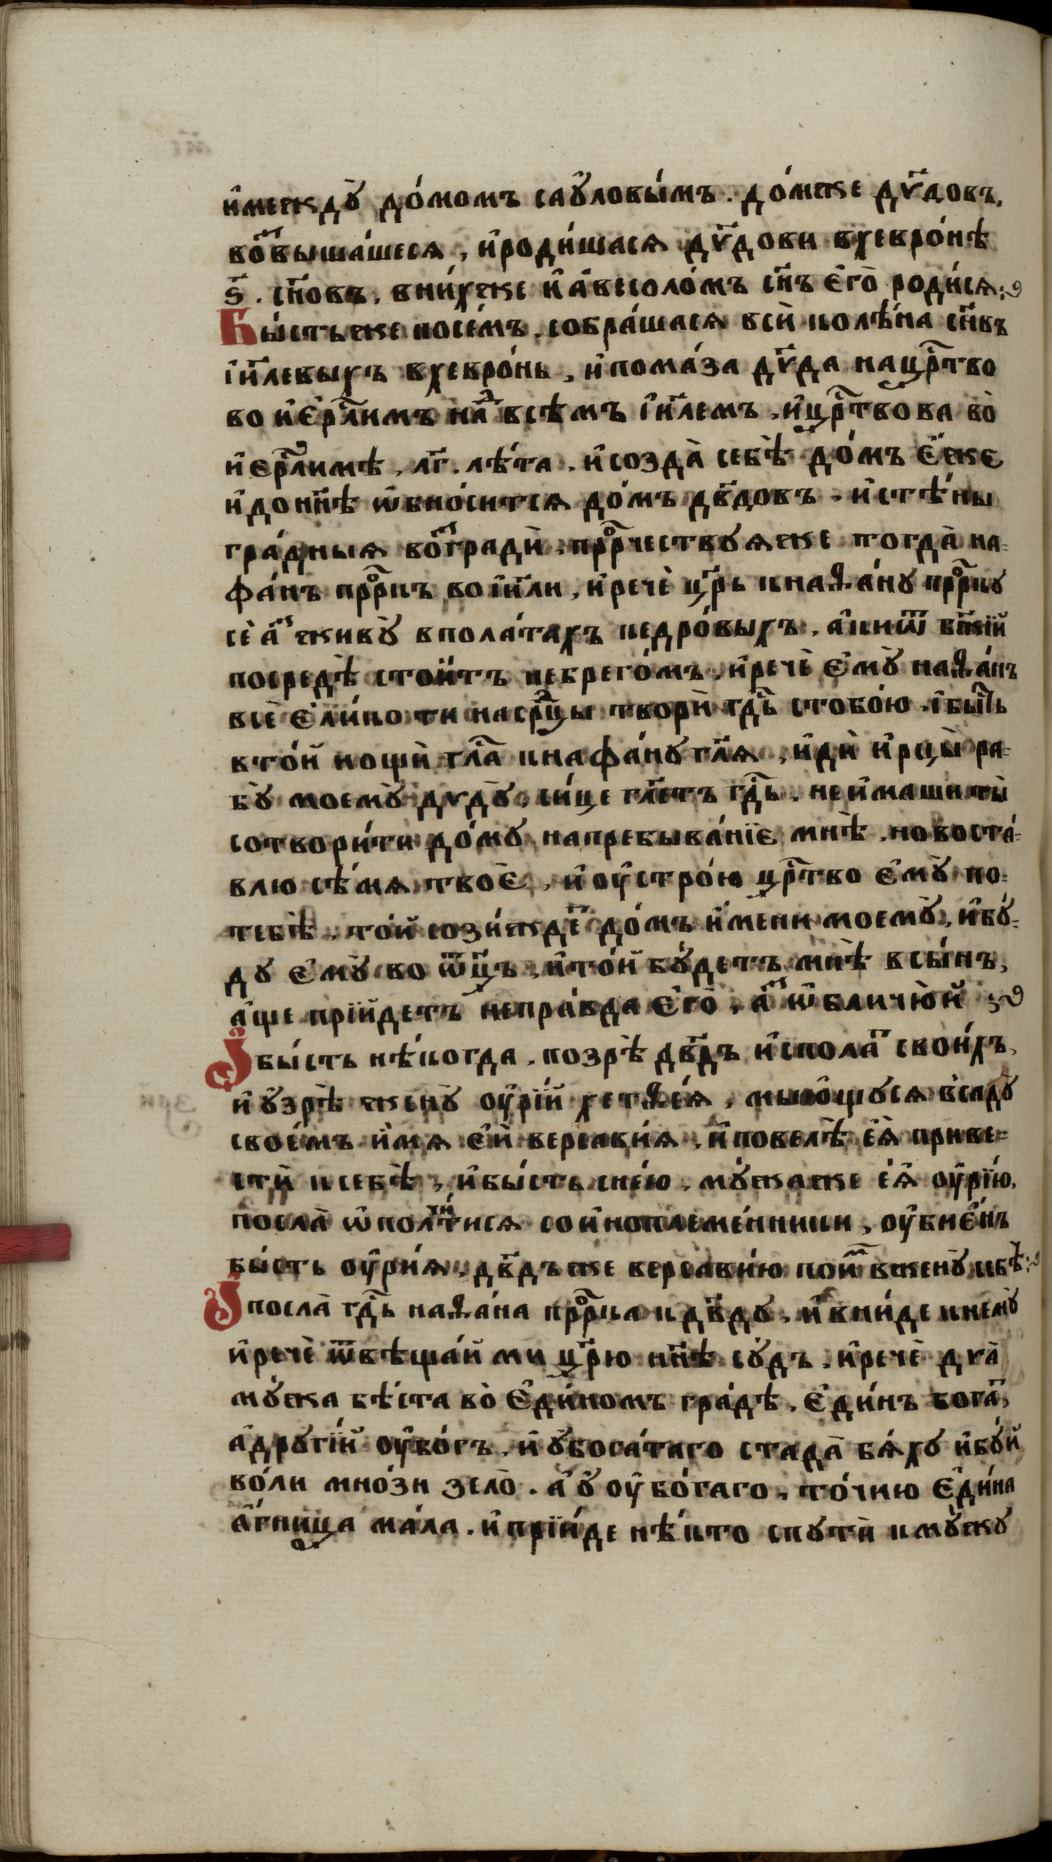 и҆междꙋ̀ до́момъ саꙋ́ловы́мъ. до́мже дв҃довъ.
во́звыша́шеся, и҆роди́шася дв҃дови вхевро́нѣ
ѕ҃. сн҃овъ. вни́хже и҆ а҆весоло́мъ сн҃ъ є҆го̀ роди́ся:
Бы́стьже посе́мъ. собра́шася всѝ колѣ́на сн҃въ
і҆и҃левыхъ вхевро́нь, и҆пома́за дв҃да нацр҃тво
во и҆єр҃лимъ на́д всѣ́мъ і҆и҃лемъ. и҆цр҃твова во̀
и҆єр҃лимѣ. лг҃. лѣ́та. и҆созда̀ себѣ̀ до́мъ є҆́же
и҆дон҃нѣ ѡ҆бно́сится до́мъ дв҃довъ. и҆стѣ́ны
гра́дныя во́зградѝ. прⷪ҇рчествуяже тогда̀ на-
фа́нъ прⷪ҇ркъ во і҆и҃ли, и҆речѐ цр҃ь кнаѳа́ну прⷪ҇рку
сѐ а҆́з живꙋ̀ вполатахъ кедро́выхъ. а҆кивѿ бж҃ій
посредѣ̀ стои́тъ небрего́мъ. и҆речѐ є҆мꙋ̀ наѳа́нъ
всѐ є҆ли́ко ти насрⷣцы творѝ гдⷭ҇ь стобо́ю. і҆бы́сть
вто́й нощѝ гл҃а кнафа́ну гл҃я, и҆дѝ и҆рцы̀ ра-
бꙋ̀ моемꙋ̀ дв҃дꙋ, си́це гл҃етъ гдⷭ҇ь. неи҆маши ты̀
сотвори́ти до́му напребыва́нїє мнѣ̀. новоста́-
влю сѣ́мя твоѐ, и҆ оу҆стро́ю цр҃тво є҆мꙋ̀ по-
тебѣ̀. то́й сози́ждет до́мъ и҆́мени моемꙋ̀, и҆бꙋ́-
ду є҆мꙋ̀ во ѿц҃ъ, и҆то́й бꙋ́детъ мнѣ̀ всы́нъ,
а҆́ще прїи́детъ непра́вда є҆го̀, а҆́з ѡ҆бличю̀й
І҆бы́сть нѣ́когда. позрѣ̀ дв҃дъ и҆спола́т свои́хъ,
и҆ ᲂу҆зрѣ̀ женꙋ̀ оу҆рі́й хетѳе́я, мы́ющуся всадꙋ̀
свое́мъ и҆́мя є҆́й вереави́я, и҆повелѣ̀ є҆я̀ приве-
стѝ ксебѣ̀, и҆бы́сть сне́ю. мꙋ́жаже є҆я̀ оу҆рі́ю,
посла̀ ѡ҆полчи́тися сои҆ноплеме́нники, оу҆бие́нъ
бы́сть оу҆ри́я, дв҃дъже вереави́ю поѧ́т вженꙋ̀ себѣ̀:
І҆посла̀ гдⷭ҇ь наѳа́на прⷪ҇рка кдв҃ду. и҆ вни́де кнемꙋ̀
и҆речѐ ѿвѣща́й ми цр҃ю нн҃ѣ сꙋ́дъ. и҆речѐ два̀
мꙋ́жа бѣ́ста во̀ є҆ди́номъ гра́дѣ. є҆ди́нъ бога́т,
а҆дрꙋгі́й оу҆бо́гъ. и҆ ᲂу҆бога́таго стада̀ бя́ху и҆бꙋ́й
во́ли мно́зи зело̀. а҆ ᲂу҆ оу҆бо́гаго. то́чию є҆ди́на
а҆́гница ма́ла. и҆прїи́де нѣ́кто спутѝ кмꙋ́жу